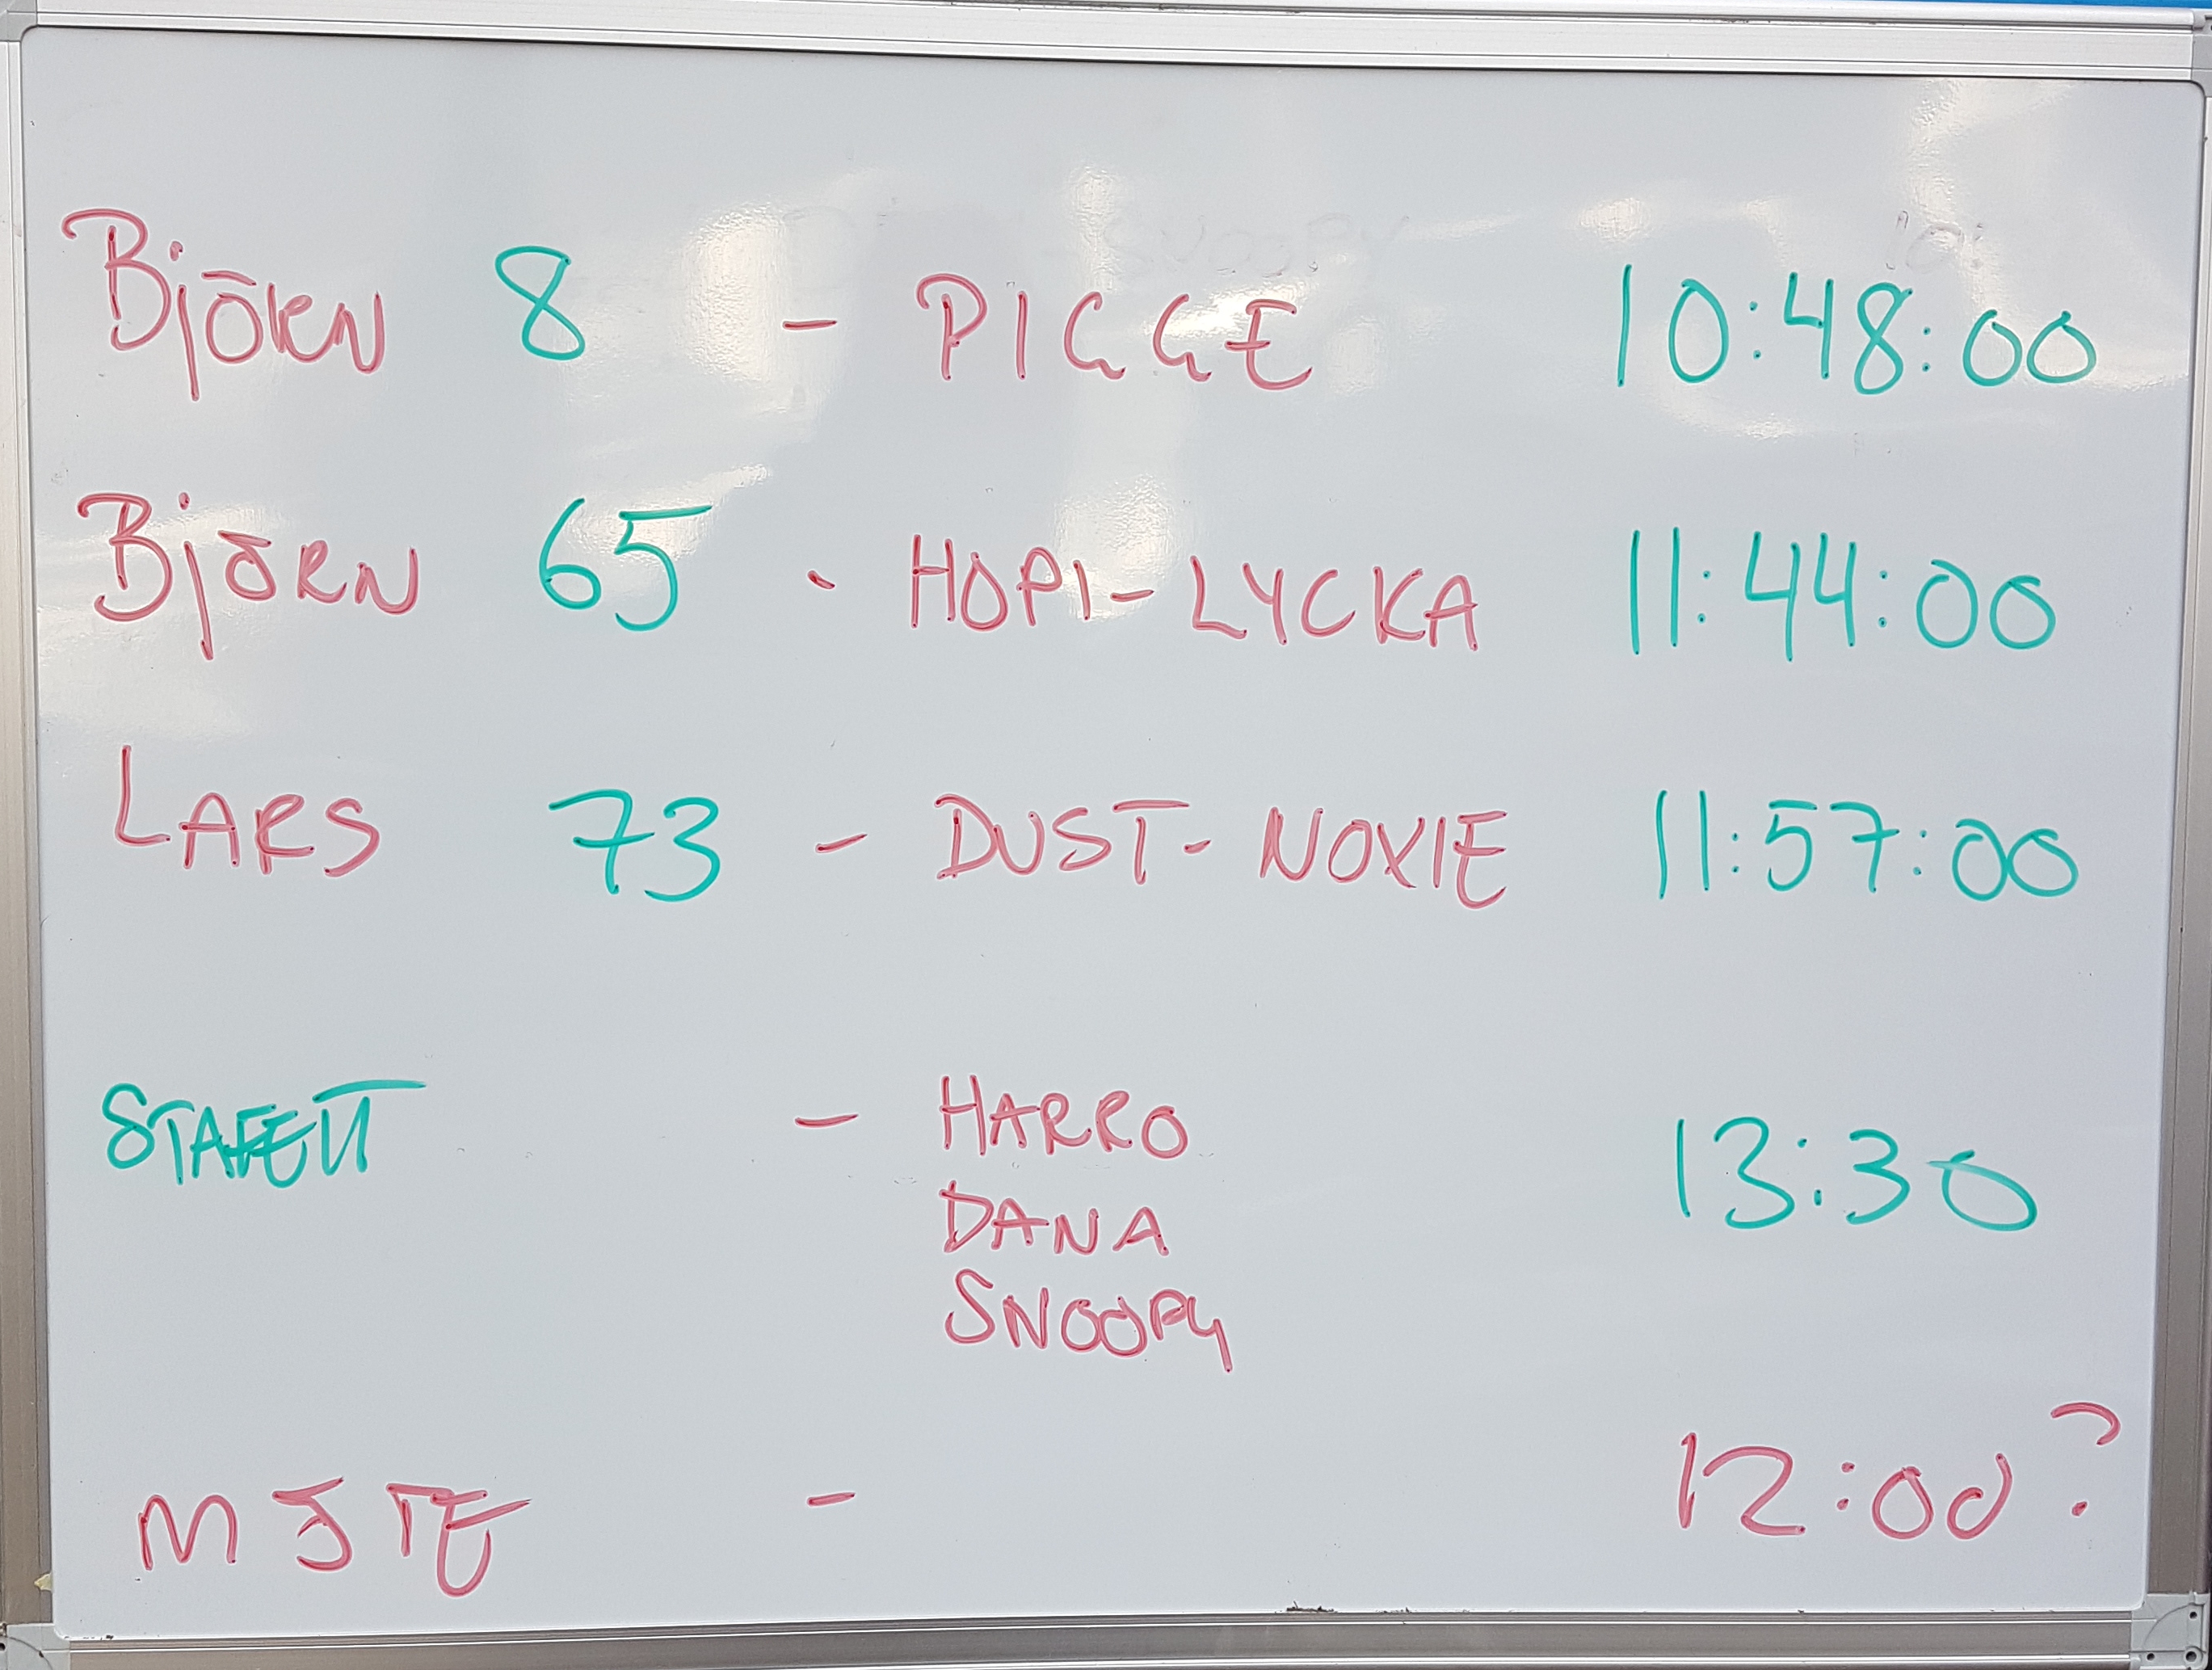 Björn 8 - PIGGE 10:48:00
Björn 65 - HOPI-LYCKA 11:44:00
LARS 73 - DUST-NOXIE 11:57:00
STAFETT - HARRO 13:30
DANA
SNOOPY
- 12:00?